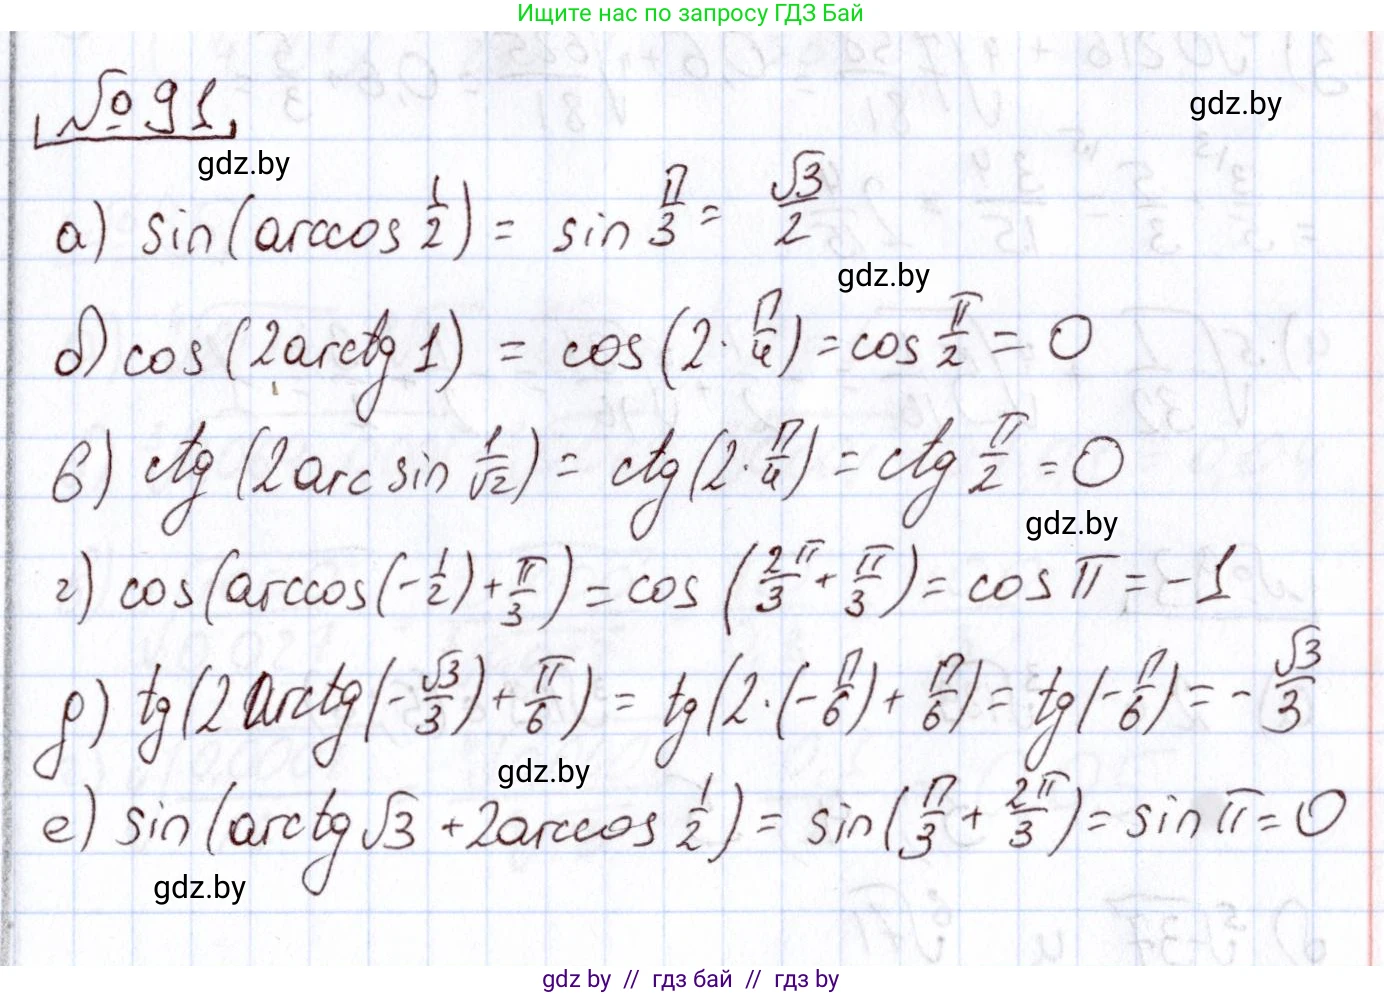 Ищите нас по запросу ГДЗ Бай
№91
gdz.by
gdz.by
а) sin(arccos 1/2) = sin π/3 = √3/2
gdz.by
б) cos(2arctg 1) = cos(2·π/4) = cos π/2 = 0
в) ctg(2arcsin 1/√2) = ctg(2·π/4) = ctg π/2 = 0
gdz.by
г) cos(arccos(-1/2)+π/3) = cos(2π/3+π/3) = cos π = -1
д) tg(2arctg(-√3/3)+π/6) = tg(2·(-π/6)+π/6) = tg(-π/6) = -√3/3
gdz.by
е) sin(arctg√3+2arccos 1/2) = sin(π/3+2π/3) = sin π = 0
gdz.by
gdz by // гдз бай // гдз by